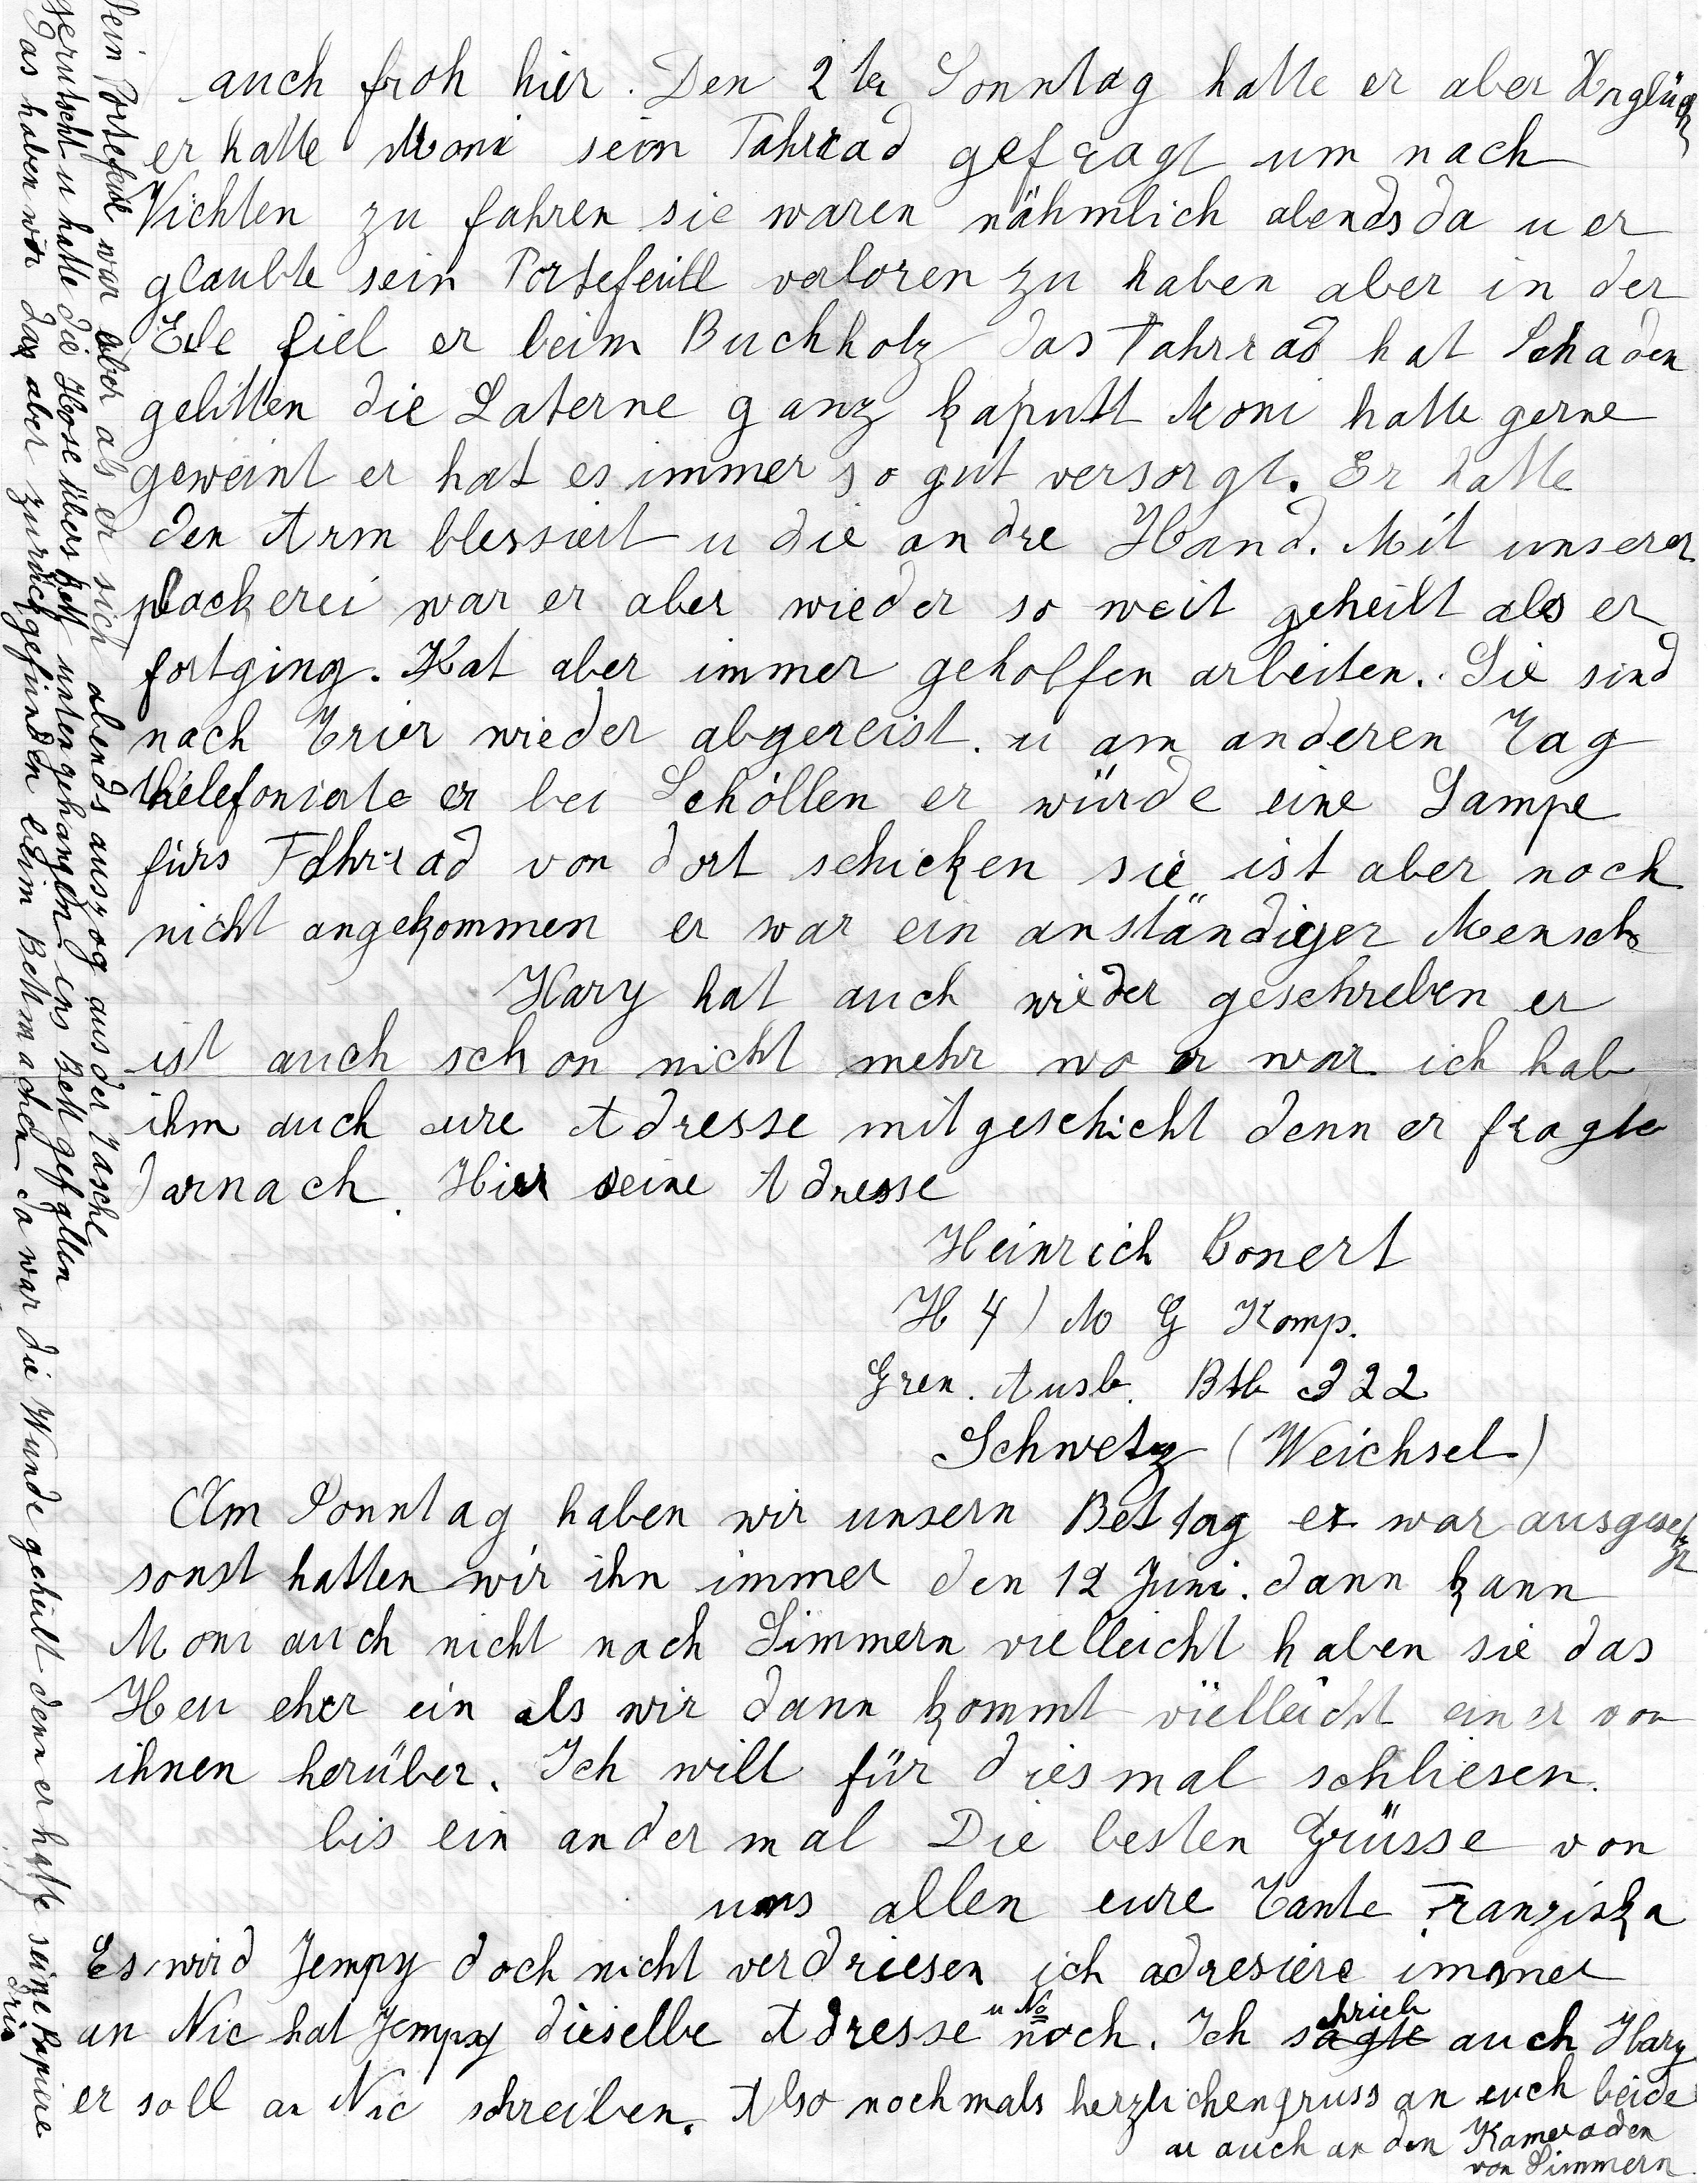 auch froh hier. Den 2ten Sonntag hatte er aber Unglück
er hatte Moni sein Fahrrad gefragt um nach
Vichten zu fahren sie waren nähmlich abends da u er
glaubte sein Portefeuill verloren zu haben aber in der
Eile fiel er beim Buchholz das Fahrrad hat Schaden
gelitten die Laterne ganz kaputt Moni hatte gerne
geweint er hat es immer so gut versorgt. Er hatte
den Arm blessiert u die andre Hand. Mit unserer
plackerei war er aber wieder so weit geheilt als er
fortging. Hat aber immer geholfen arbeiten. Sie sind
nach Trier wieder abgereist. u am anderen Tag
thelefonierte er bei Schöllen er würde eine Lampe
fürs Fahrrad von dort schicken sie ist aber noch
nicht angekommen er war ein anständiger Mensch
Hary hat auch wieder geschreben er
ist auch schon nicht mehr wo er war ich hab
ihm auch eure Adresse mitgeschickt denn er fragte
darnach. Hier seine Adresse
Heinrich Bonert
H 4) M G Komp.
Gren. Ausb. Btl 322
Schwetz (Weichsel)
Am Sonntag haben wir unsern Bettag er war ausgesetzt
sonst hatten wir ihn immer den 12 Juni. dann kann
Moni auch nicht nach Simmern vielleicht haben sie das
Heu eher ein als wir dann kommt vielleicht einer von
ihnen herüber. Ich will für diesmal schliesen.
bis ein ander mal Die besten Grüsse von
uns allen eure Tante Franziska
Es wird Jempy doch nicht verdriesen ich adresiere immer
an Nic hat Jempy dieselbe Adresse u No noch. Ich sagte schrieb auch Hary
er soll an Nic schreiben. Also nochmals herzlichengruss an euch beide
u auch an den Kameraden
von Simmern
Sein Portefeuill war aber als er sich abends auszog aus der Tasche
gerutscht u hatte die Hose übers Bett unten gehangen ins Bett gefallen
Das haben wir dan aber zurückgefunden beim Bettmachen da war die Wunde geheilt denn er hatte seine Papiere
drin